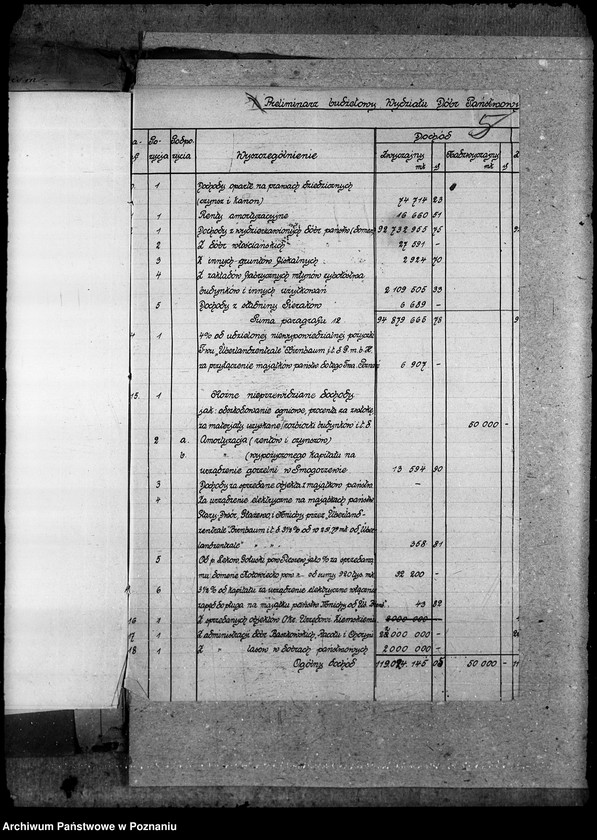 Preliminarz budżetowy Wydziału Dóbr Państwowy
5
Dochód
Po-
zycja
Podpo-
zycja
Wyszczególnienie
Zwyczajny
mk
Nadzwyczajny
mk
1 Dochody oparte na prawach dziedzicznych
(czynsz i kanon) 74 714 23
1 Renty amortyzacyjne 16 660 51
1 Dochody z wydzierżawionych dóbr państw (domen) 92 732 955 75
2 Z dóbr włościańskich 27 591 -
3 Z innych gruntów fiskalnych 2 924 70
4 Z zakładów fabrycznych młynów rybołóstwa
budynków i innych użytkowań 2 109 505 33
5 Dochody z stadniny Sieraków 6 689 -
Suma paragrafu 12 94 879 665 78
4 1 4% od udzielonej niewypowiedzialnej pożyczki
Tow. „Überlandzentrale" Birnbaum i.t.d. G.m.b.H.
za przyłączenie majątków państw do tego Tow. 6 907 -
15. 1 Różne nieprzewidziane dochody
jak: odszkodowanie ogniowe, procenta za zwłokę,
za materjały uzyskane z rozbiórki budynków i.t.d. 50 000 -
2 a. Amortyzacja (rentów i czynszów)
b. " (wypożyczonego kapitału na
urządzenie gorzelni w Smogorzewie 13 594 90
3 Dochody za sprzedane objekta z majątków państw -
4 Za urządzenie elektryczne na majątkach państw
i Mnichy przez „Überland-
zentrale" Birnbaum i.t.d. 3½% od mk od „Über-
landzentrale" " " 358 81
5 Od p. jako % za sprzedaną
mu domenę od sumy 920 tys. mk. 32 200 -
6 3½% od kapitału za urządzenie elektryczne włącznie
zapęd do pługa na majątku państw Mnichy 43 82
16 1 Z sprzedanych objektów Okr. Urzędowi Ziemskiemu 8000 000 -
17 1 Z administracji dóbr Baszkowskich, Racotu i 22 000 000 -
18 1 Z " lasów w dobrach państwowych 2 000 000 -
Ogólny dochód 119.024.145 05 50 000 - 11
Archiwum Państwowe w Poznaniu